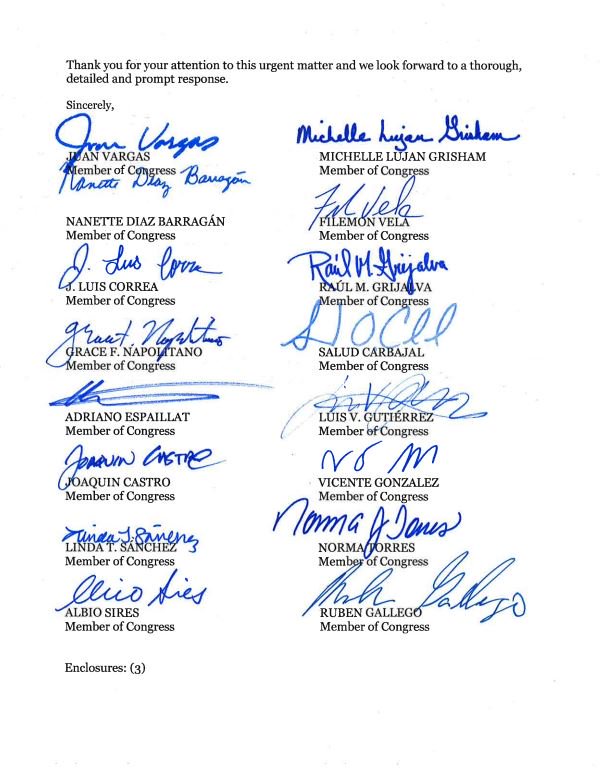 Thank you for your attention to this urgent matter and we look forward to a thorough,
detailed and prompt response.
Sincerely,
Juan Vargas
JUAN VARGAS
Member of Congress
Nanette Diaz Barragán
NANETTE DIAZ BARRAGÁN
Member of Congress
J. Luis Correa
J. LUIS CORREA
Member of Congress
Grace F. Napolitano
GRACE F. NAPOLITANO
Member of Congress
ADRIANO ESPAILLAT
Member of Congress
Joaquin Castro
JOAQUIN CASTRO
Member of Congress
Linda T. Sánchez
LINDA T. SANCHEZ
Member of Congress
Albio Sires
ALBIO SIRES
Member of Congress
Michelle Lujan Grisham
MICHELLE LUJAN GRISHAM
Member of Congress
Fil Vela
FILEMON VELA
Member of Congress
Raúl M. Grijalva
RAÚL M. GRIJALVA
Member of Congress
SALUD CARBAJAL
Member of Congress
LUIS V. GUTIÉRREZ
Member of Congress
VICENTE GONZALEZ
Member of Congress
Norma J Torres
NORMA TORRES
Member of Congress
Ruben Gallego
RUBEN GALLEGO
Member of Congress
Enclosures: (3)